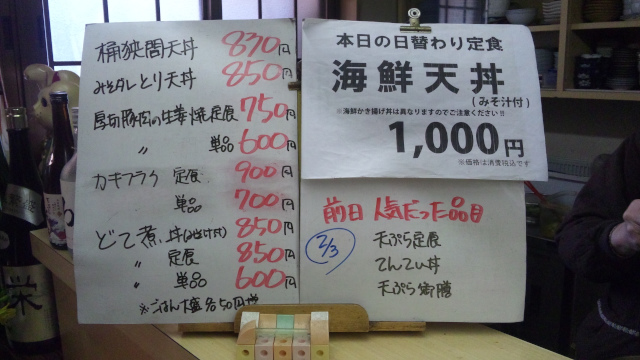 桶狭間天丼 870円
みそダレとり天丼 850円
厚切豚肉の生姜焼定食 750円
〃 単品 600円
カキフライ 定食 900円
単品 700円
どて煮 丼(みそ汁付) 850円
〃 定食 850円
〃 単品 600円
※ごはん大盛各50円増
本日の日替わり定食
海鮮天丼
(みそ汁付)
※海鮮かき揚げ丼は異なりますのでご注意ください!!
1,000円
※価格は消費税込です
前日 人気だった品目
2/3
天ぷら定食
てんてい丼
天ぷら御膳
栄